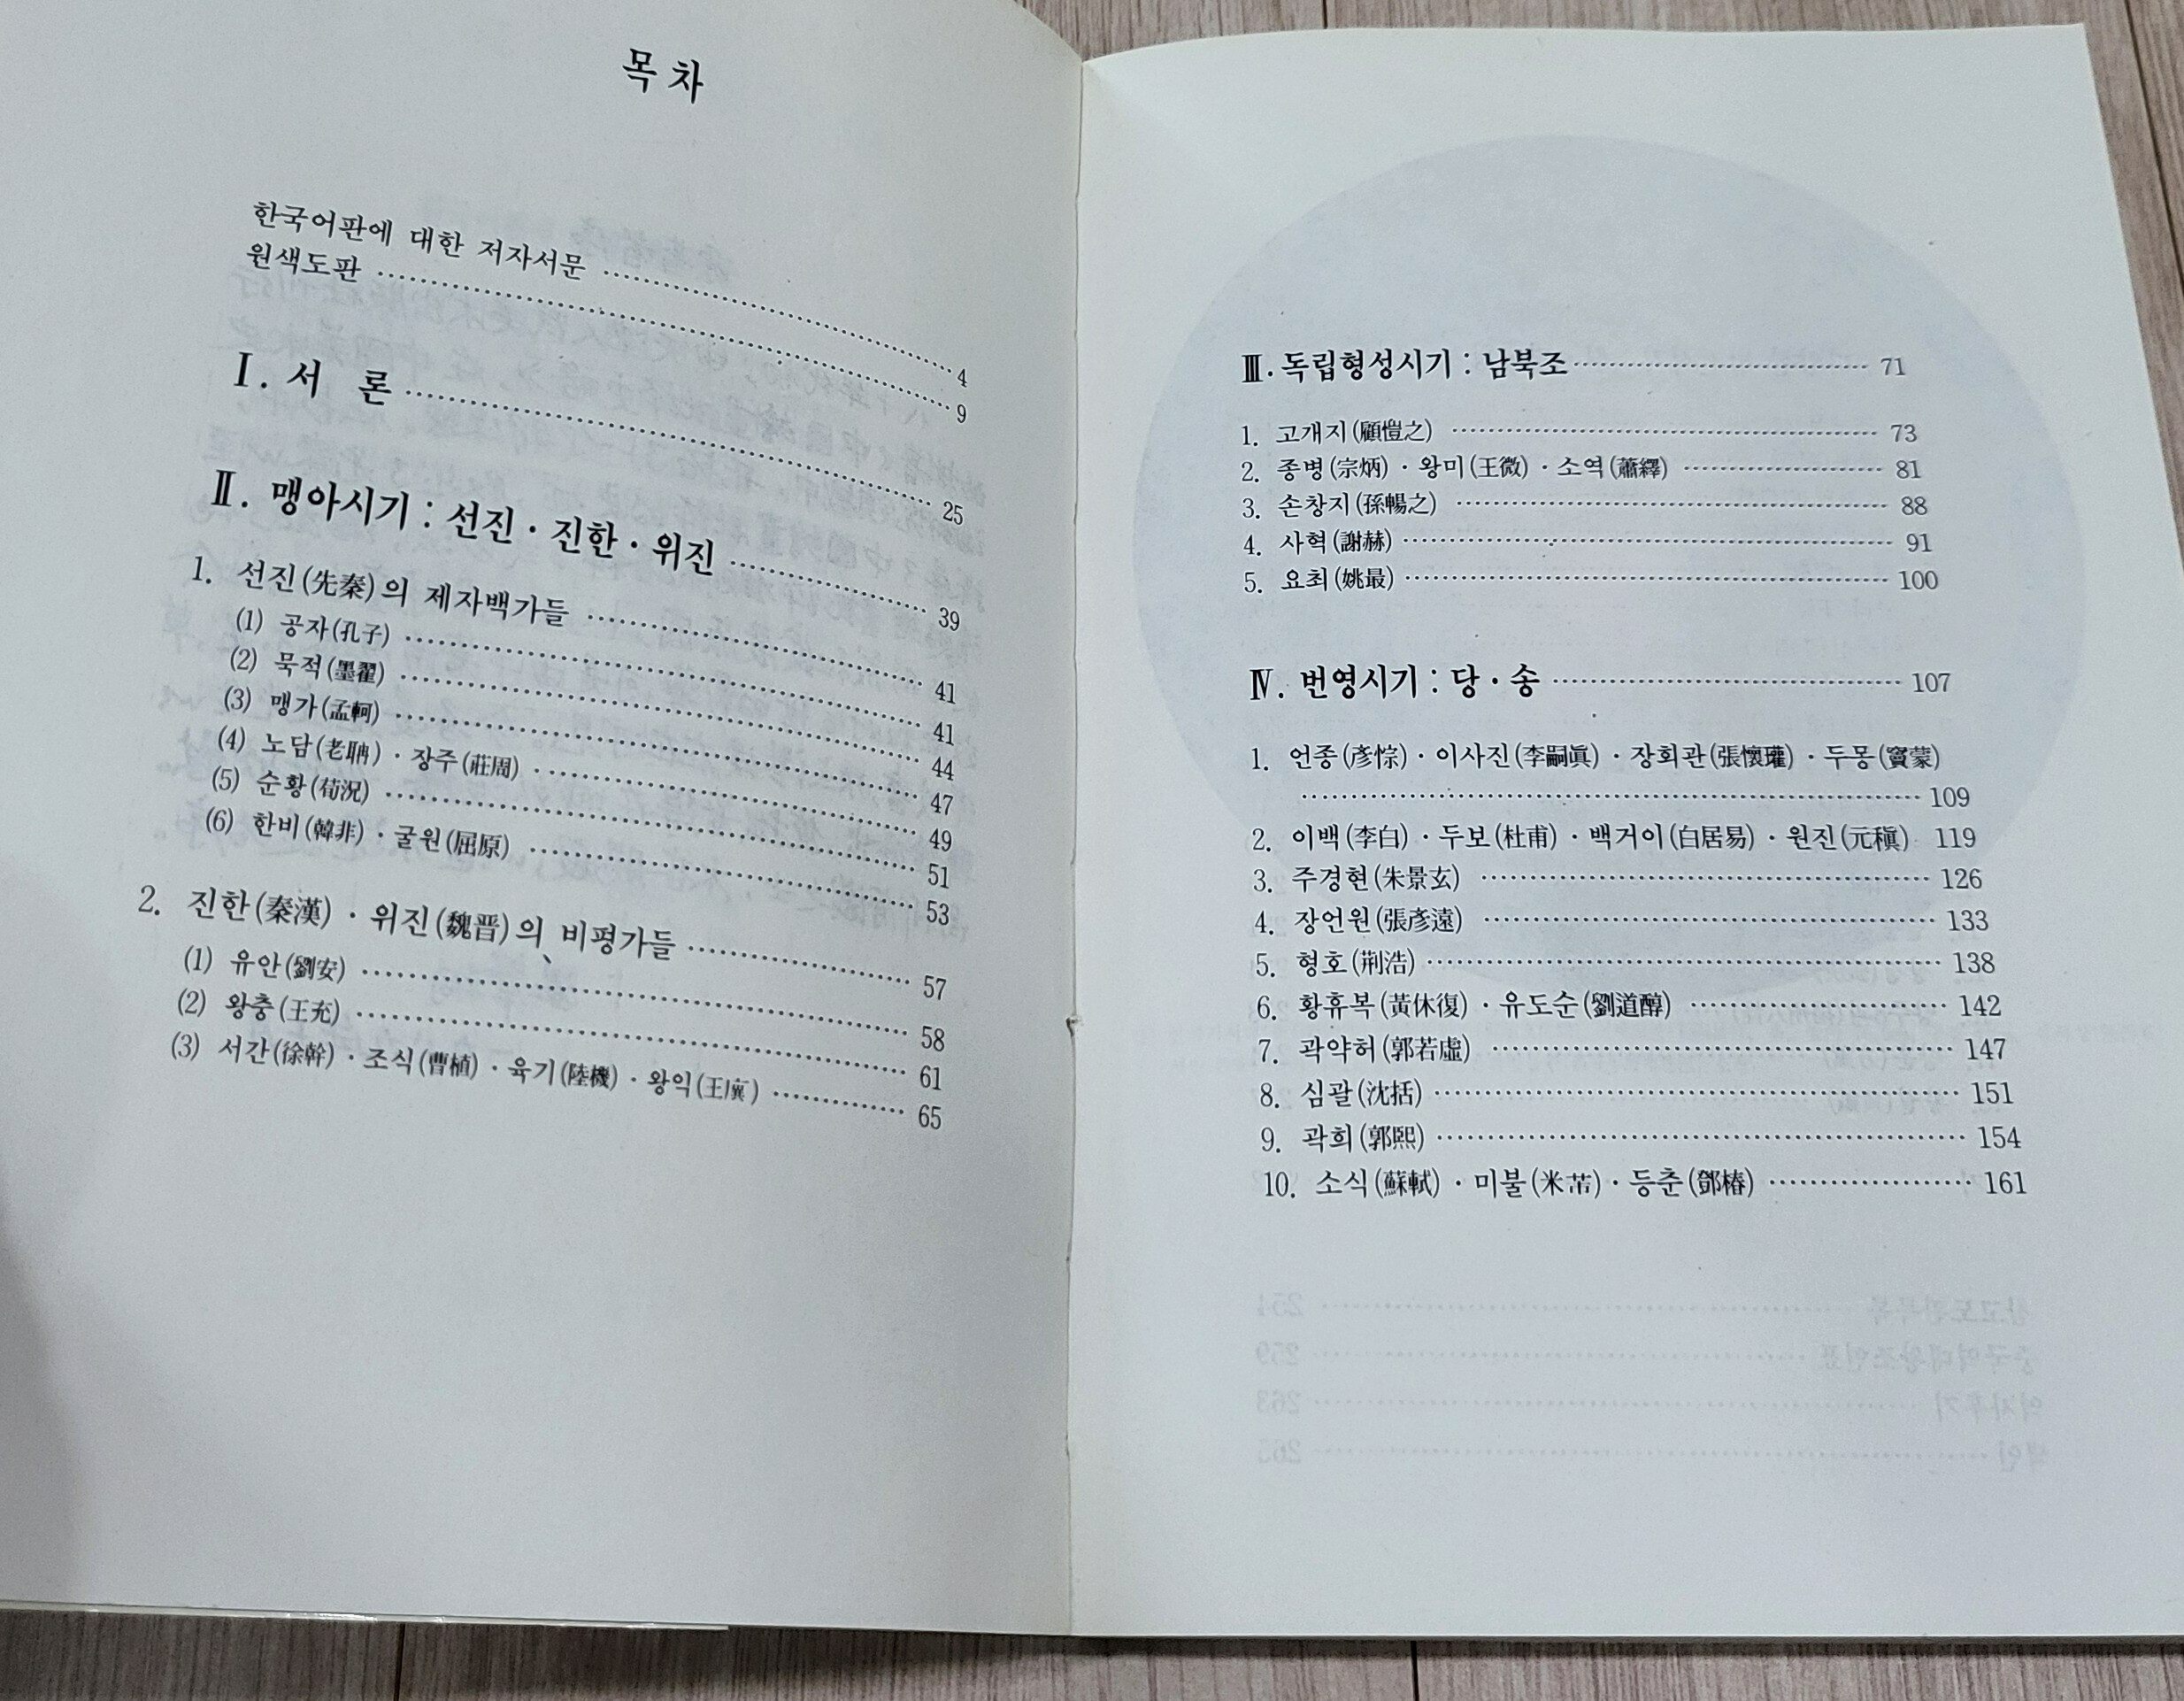 목 차
한국어판에 대한 저자서문 ······ 4
원색도판 ······ 9
Ⅰ. 서 론 ······ 25
Ⅱ. 맹아시기 : 선진 · 진한 · 위진 ······ 39
1. 선진(先秦)의 제자백가들 ······ 41
(1) 공자(孔子) ······ 41
(2) 묵적(墨翟) ······ 44
(3) 맹가(孟軻) ······ 47
(4) 노담(老聃) · 장주(莊周) ······ 49
(5) 순황(荀況) ······ 51
(6) 한비(韓非) · 굴원(屈原) ······ 53
2. 진한(秦漢) · 위진(魏晋)의 비평가들 ······ 57
(1) 유안(劉安) ······ 58
(2) 왕충(王充) ······ 61
(3) 서간(徐幹) · 조식(曹植) · 육기(陸機) · 왕익(王廙) ······ 65
Ⅲ. 독립형성시기 : 남북조 ······ 71
1. 고개지(顧愷之) ······ 73
2. 종병(宗炳) · 왕미(王微) · 소역(蕭繹) ······ 81
3. 손창지(孫暢之) ······ 88
4. 사혁(謝赫) ······ 91
5. 요최(姚最) ······ 100
Ⅳ. 번영시기 : 당 · 송 ······ 107
1. 언종(彥悰) · 이사진(李嗣眞) · 장회관(張懷瓘) · 두몽(竇蒙)
······ 109
2. 이백(李白) · 두보(杜甫) · 백거이(白居易) · 원진(元稹) 119
3. 주경현(朱景玄) ······ 126
4. 장언원(張彥遠) ······ 133
5. 형호(荆浩) ······ 138
6. 황휴복(黃休復) · 유도순(劉道醇) ······ 142
7. 곽약허(郭若虛) ······ 147
8. 심괄(沈括) ······ 151
9. 곽희(郭熙) ······ 154
10. 소식(蘇軾) · 미불(米芾) · 등춘(鄧椿) ······ 161